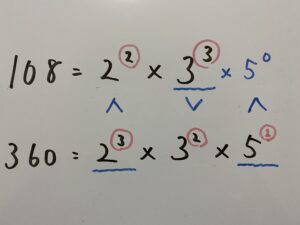 108 = 2² × 3³ × 5⁰
∧ ∨ ∧
360 = 2³ × 3² × 5¹